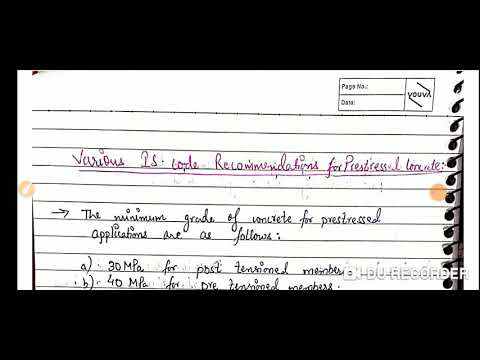 Page No.:
Date:
YOUVA
Various IS. code Recommendations for Prestressed Concrete:
→ The minimum grade of concrete for prestressed
applications are as follows:
a) 30 MPa for post tensioned member
DU RECORDER
b) 40 MPa for pre tensioned members.